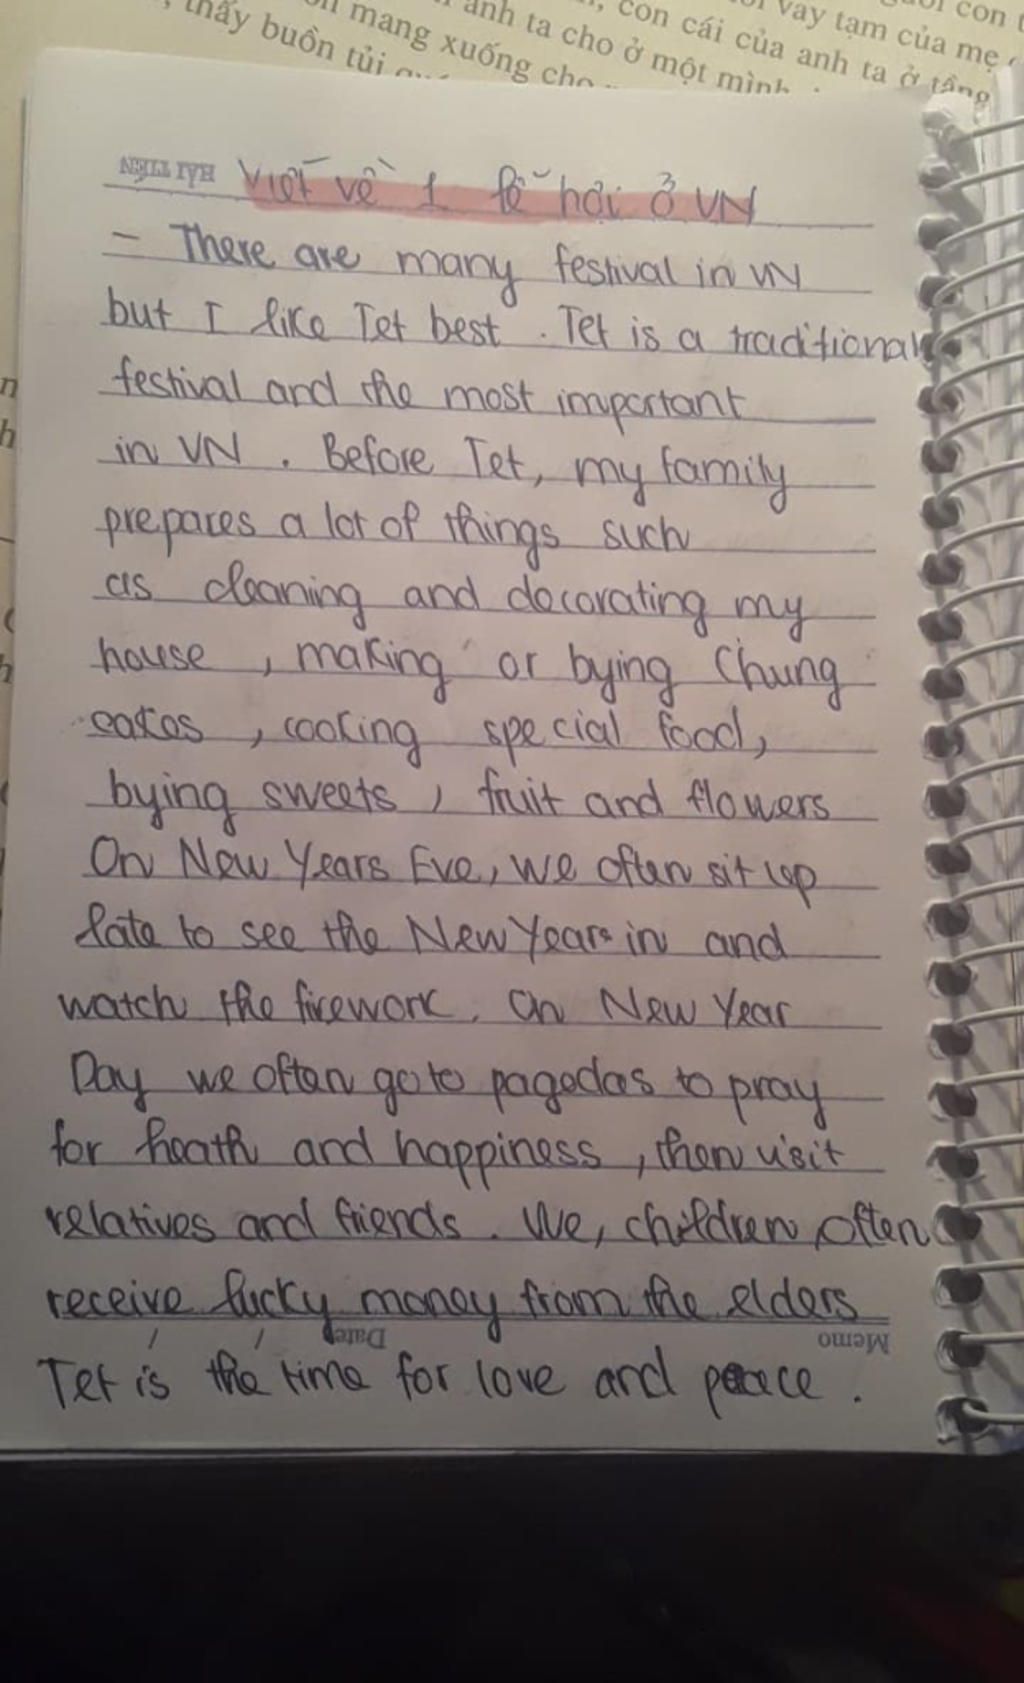 thấy buồn tủi
mang xuống cho
anh ta cho ở một mình
con cái của anh ta ở tầng
vay tạm của mẹ
con
HẢI TIẾN
Viết về 1 lễ hội ở VN
- There are many festival in VN
but I like Tet best . Tet is a traditional
festival and the most important
in VN . Before Tet, my family
prepares a lot of things such
as cleaning and decorating my
house , making or bying Chung
cakes , cooking special food,
bying sweets , fruit and flowers
On New Years Eve, we often sit up
late to see the New Years in and
watch the firework. On New Year
Day we often go to pagodas to pray
for heath and happiness , then visit
relatives and friends . We, children often
receive lucky money from the elders
Memo Date
Tet is the time for love and peace .